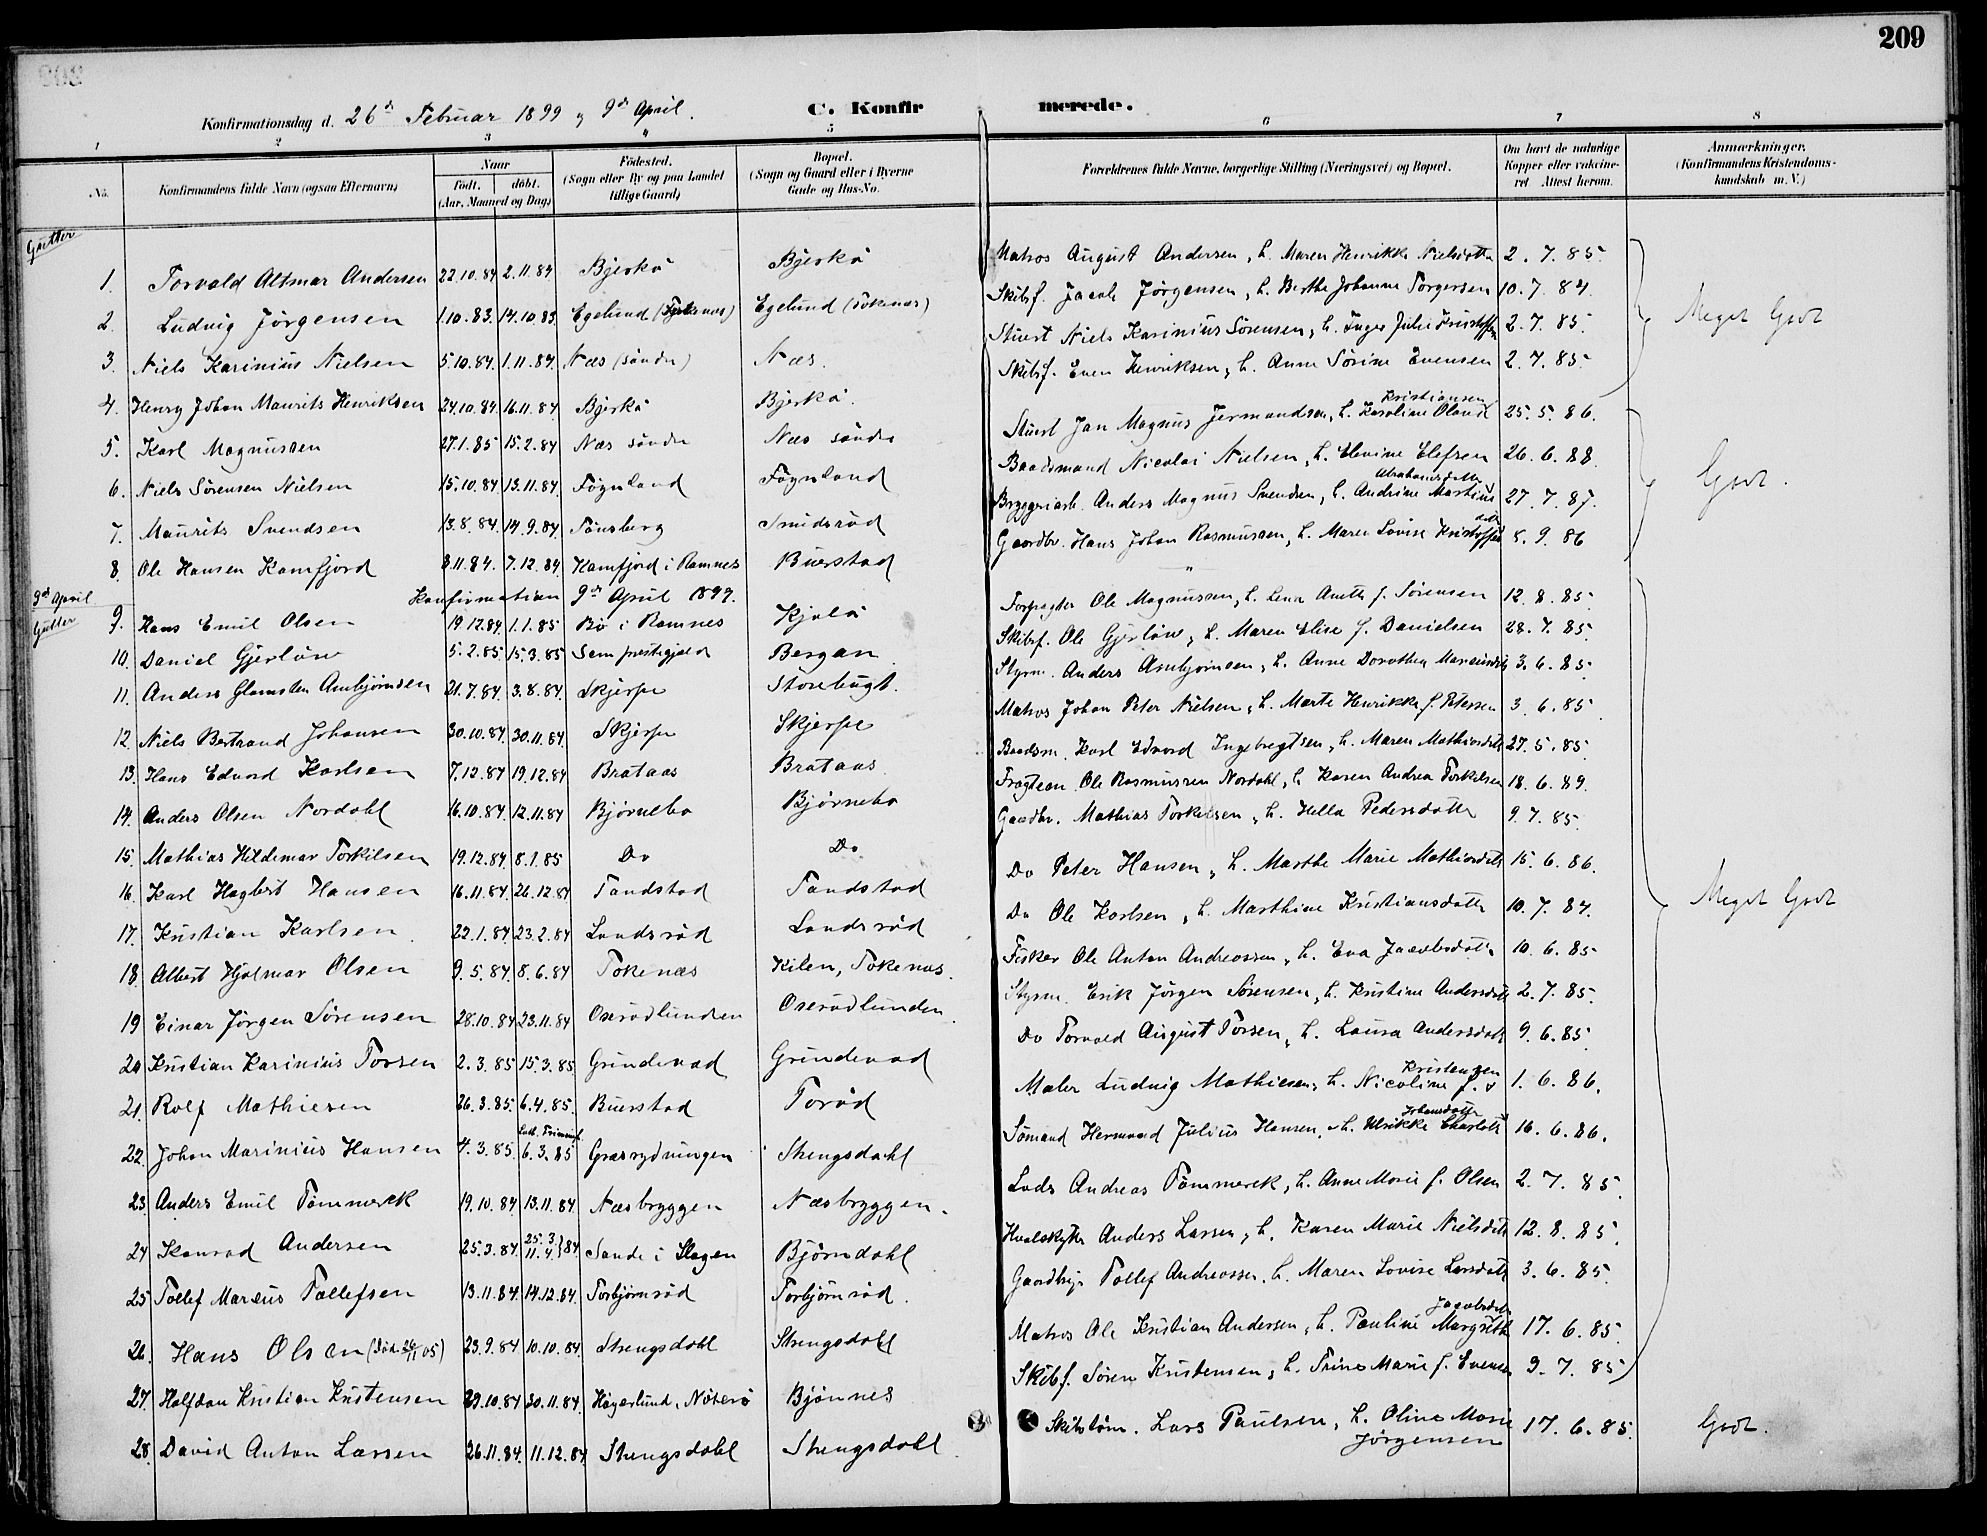 209
Konfirmationsdag d. 26de Februar 1899 og 9de April.
C. Konfirmerede.
1 2 3 4 5 6 7 8
No. Konfirmandens fulde Navn (ogsaa Efternavn) Naar Født. døbt. (Aar, Maaned og Dag) Fødested. (Sogn eller By og paa Landet tillige Gaard) Bopæl. (Sogn og Gaard eller i Byerne Gade og Hus-No. Forældrenes fulde Navne, borgerlige Stilling (Næringsvei) og Bopæl. Om havt de naturlige Kopper eller vaccineret Attest herom. Anmærkninger. (Konfirmandens Kristendomskundskab m. V.)
Gutter
1. Torvald Altmar Andersen 22.10.84 2.11.84 Bjerkø Bjerkø Matros August Andersen, h. Maren Henrikke Nielsdatter 2. 7. 85.
2. Ludvig Jørgensen 1.10.83. 14.10.83 Egelund Egelund Skibsf. Jacob Jørgensen, h. Berthe Johanne Torgersen 10. 7. 84.
3. Niels Karinius Nielsen 5.10.84. 1.11.84. Næs (søndre) Næs. Stuert Niels Karinius Sørensen, h. Inger Julie 2. 7. 85.
Meget Godt
4. Henry Johan Maurits Henriksen 24.10.84 16.11.84 Bjerkø Bjerkø. Skibsf. Even Henriksen, h. Anne Sørine Evensen 2. 7. 85.
5. Karl Magnussen 27.1.85 15.2.84 Næs søndre Næs søndre Stuert Jan Magnus h. Karoline Kristiansen 25. 5. 86.
6. Niels Sørensen Nielsen 15.10.84 13.11.84 Føynland Føynland Baadsmand Nicolai Nielsen, h. Elevine Elefsen 26. 6. 88.
Godt.
7. Maurits Svendsen 13.8.84 14.9.84 Tønsberg Smidsrød Bryggeriarb. Anders Magnus Svendsen, h. Andrine Martine Abrahamsdatter 27. 7. 87.
8. Ole Hansen Kamfjord 8.11.84. 7.12.84 Kamfjord i Ramnes Buerstad Gaardbr. Hans Johan Rasmussen, h. Maren Lovise 8. 9. 86
9de April
Konfirmation 9de April 1899.
Gutter
9. Hans Emil Olsen 19.12.84 1.1.85 Bø i Ramnes Kjølø Forpagter Ole Magnussen, h. Lena Anette f. Sørensen 12. 8. 85.
10. Daniel Gjerløw 5.2.85 15.3.85 Sem prestegjeld Bergan Skibsf. Ole Gjerløw, h. Maren Elise f. Danielsen 28. 7. 85.
11. Anders Arnbjørnsen 21.7.84 3.8.84. Skjerpe Storebugt. Styrm. Anders Arnbjørnsen, h. Anne Dorothea 3. 6. 85.
12. Niels Bertrand Johansen 30.10.84 30.11.84 Skjerpe Skjerpe Matros Johan Peter Nielsen, h. Marte Henrikke f. Petersen 3. 6. 85.
13. Hans Edvard Karlsen 7.12.84 19.12.84 Brataas Brataas Baadsm. Karl Edvard Ingebregtsen, h. Maren Mathiasdatt 27. 5. 85.
14. Anders Olsen Nordahl 16.10.84 12.11.84 Bjørnebo Bjørnebo Ole Rasmussen Nordahl, h. Karen Andrea Torkilsen 18. 6. 89.
15. Mathias Hildemar Torkilsen 19.12.84 8.1.85 Do Do Gaardbr. Mathias Torkilsen, h. Hella Pedersdatter 9. 7. 85.
16. Karl Hagbert Hansen 16.11.84. 26.12.84 Tandstad Tandstad Do Peter Hansen, h. Marthe Marie Mathiasdatt 15. 6. 86.
17. Kristian Karlsen 22.1.84 23.2.84 Landsrød Landsrød Do Ole Karlsen, h. Marthine Kristiansdatter 10. 7. 84.
Meget Godt
18. Albert Hjalmar Olsen 9.5.84 8.6.84 Tokenæs Kilen, Tokenæs. Fisker Ole Anton Andreassen, h. Eva Jacobsdatter 10. 6. 85
19 Einar Jørgen Sørensen 28.10.84 23.11.84 Oserødlunden Oserødlunden. Styrm. Erik Jørgen Sørensen, h. Kristine Andersdatt 2. 7. 85.
20 Kristian Karinius Torsen 2.3.85 15.3.85 Grindevad Grindevad Do Torvald August Torsen, h. Laura Andersdatt 9. 6. 85.
21. Rolf Mathiesen 26.3.85. 6.4.85. Buerstad Torød Maler Ludvig Mathiesen, h. Nicoline f. Kristensen 1. 6. 86.
22. Johan Marinius Hansen 4.3.85. 6.3.85 Græsrydningen Stengsdahl Sømand Hermand Julius Hansen, h. Ulrikke Charlotte Johansdatter 16. 6. 86.
23. Anders Emil Tømmerek 19.10.84 13.11.84 Næsbryggen Næsbryggen. Lods Andreas Tømmerek, h. Anne Marie f. Olsen 2. 7. 85.
24 Konrad Andersen 25.3.84. 25.3. 11.4. 84 Sande i Slagen Bjørndahl Hvalskytter Anders Larsen, h. Karen Marie Nielsdatt 12. 8. 85.
25 Tollef Marius Tollefsen 13.11.84. 14.12.84. Torbjørnrød Torbjørnrød. Tollef Andreassen, h. Maren Lovise Larsdatt 3. 6. 85.
26. Hans Olsen (død 26/11 05) 23.9.84 10.10.84. Stengsdahl Stengsdahl Matros Ole Kristian Andersen, h. Pauline Margrethe Jacobsdatt 17. 6. 85.
27. Halfdan Kristian Kristensen 29.10.84 30.11.84. Høyerlund, Nøterø Bjønnes Skibsf. Søren Kristensen, h. Trine Marie f. Evensen 9. 7. 85
28. David Anton Larsen 26.11.84. 11.12.84 Stengsdahl Stengsdahl Skibstøm. Lars Paulsen, h. Oline Marie Jørgensen 17. 6. 85. Godt.